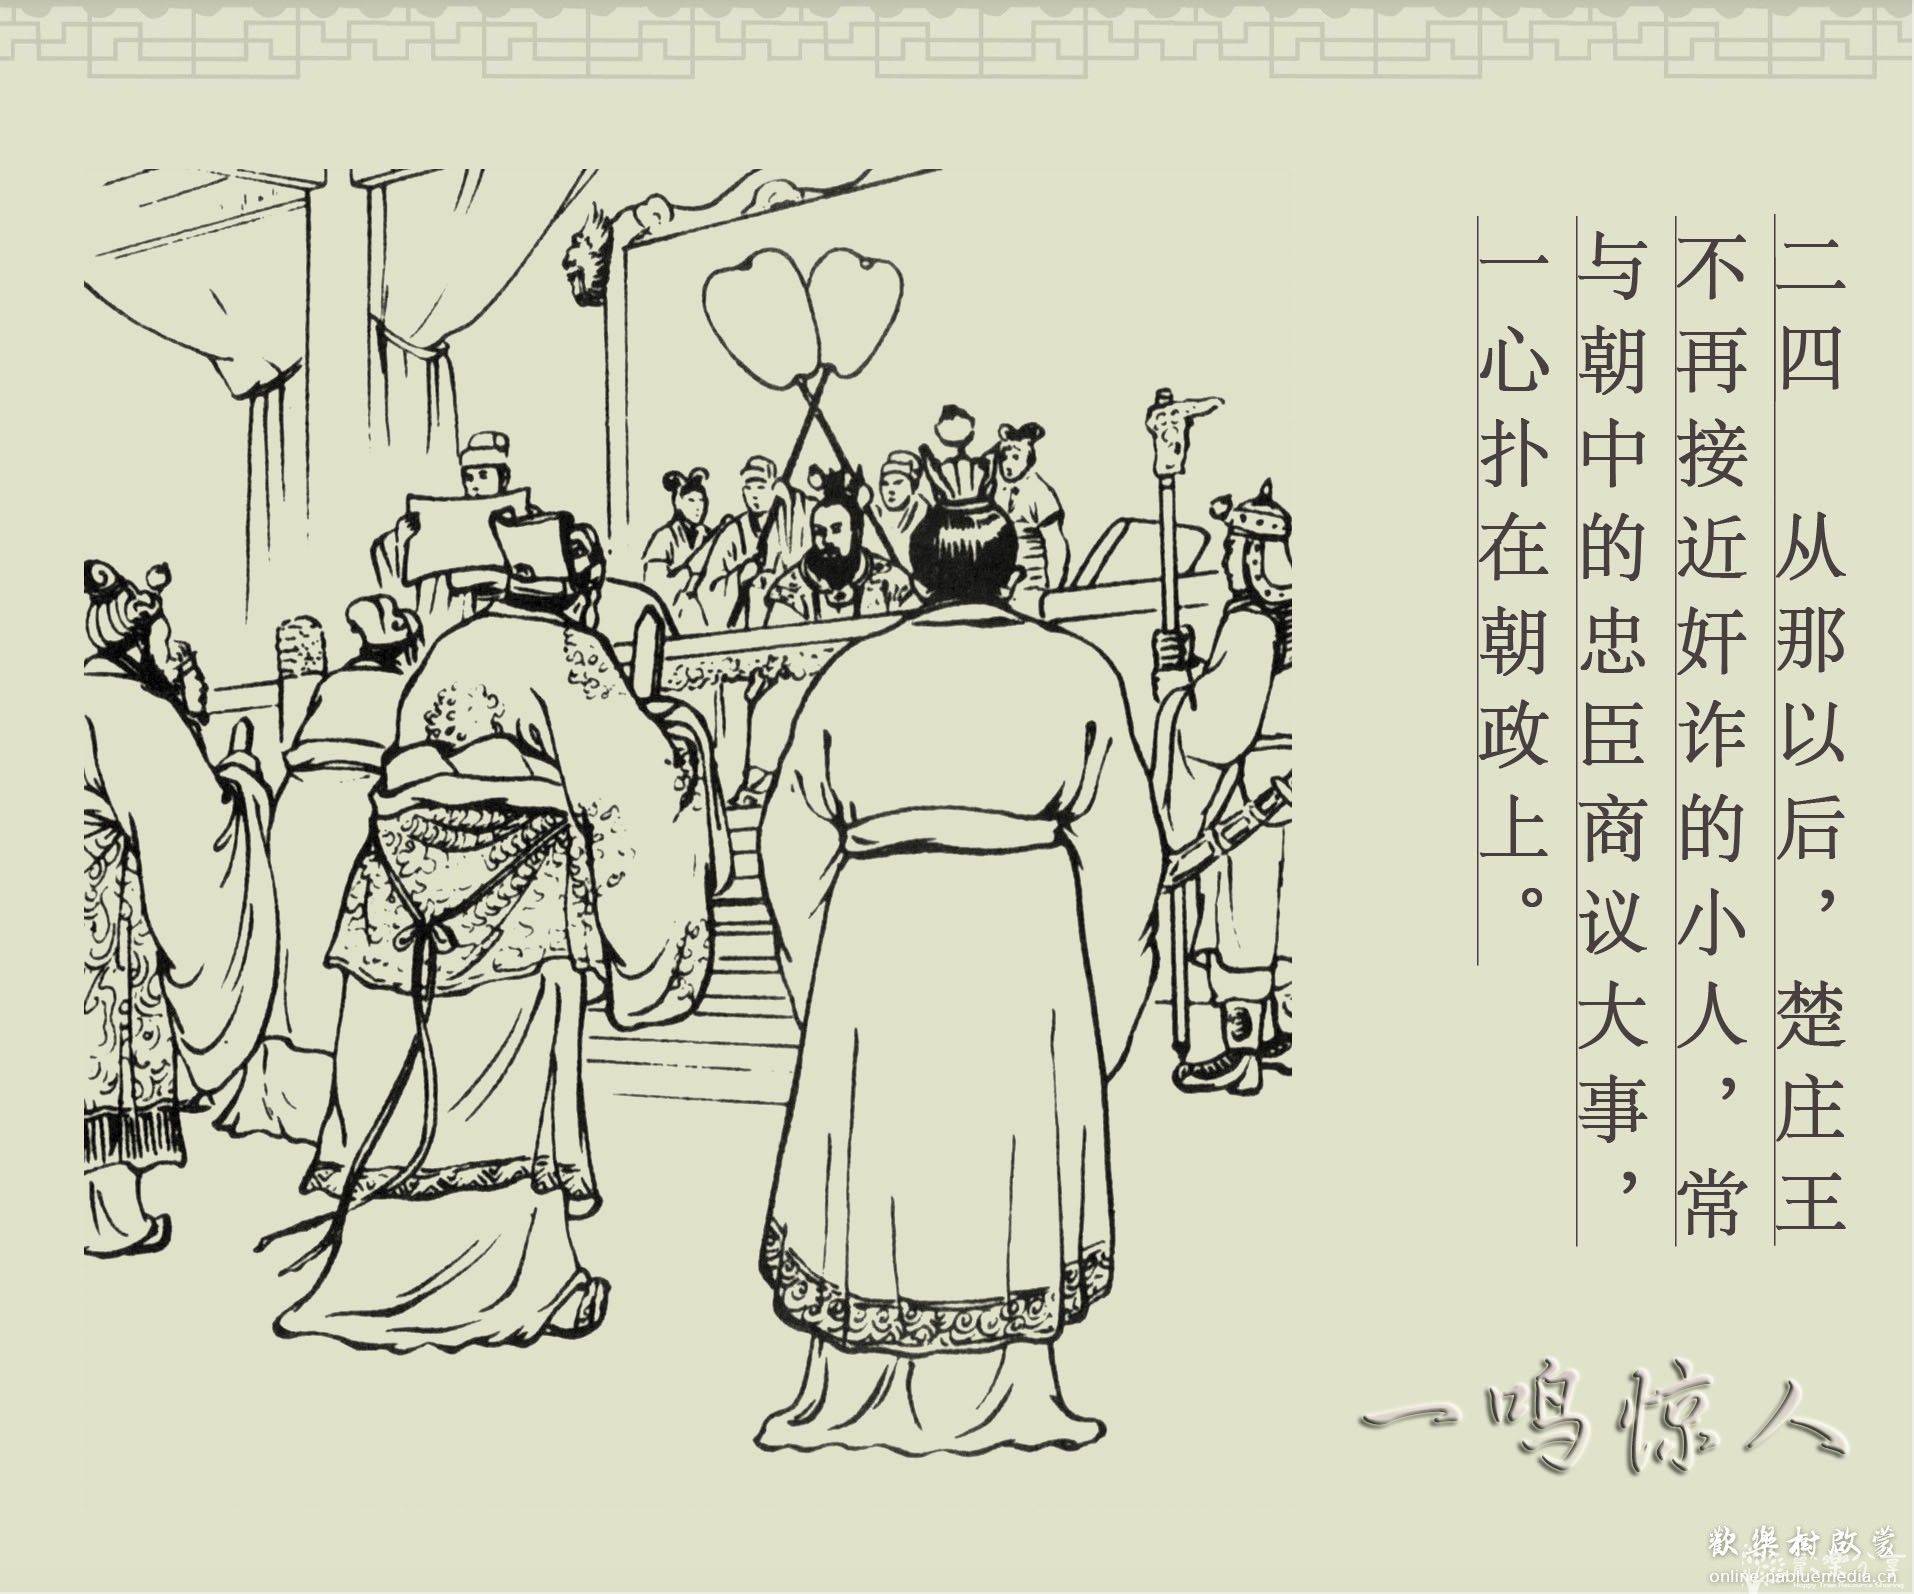 二四　从那以后，楚庄王
不再接近奸诈的小人，常
与朝中的忠臣商议大事，
一心扑在朝政上。
一鸣惊人
歡樂樹啟蒙
online.nabluemedia.cn
Happy Tree Resource Sharing